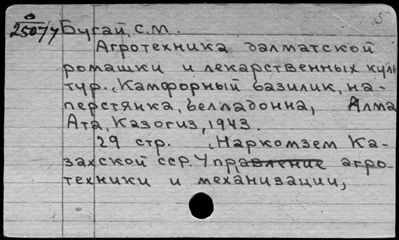 25077 Бугай, С.М.
Агротехника далматской
ромашки и лекарственных куль
тур. Камфорный базилик, на-
перстянка, белладонна, Алма
Ата, Казогиз, 1943.
29 стр. , Наркомзем Ка-
захской сср. Управление агро-
техники и механизации,